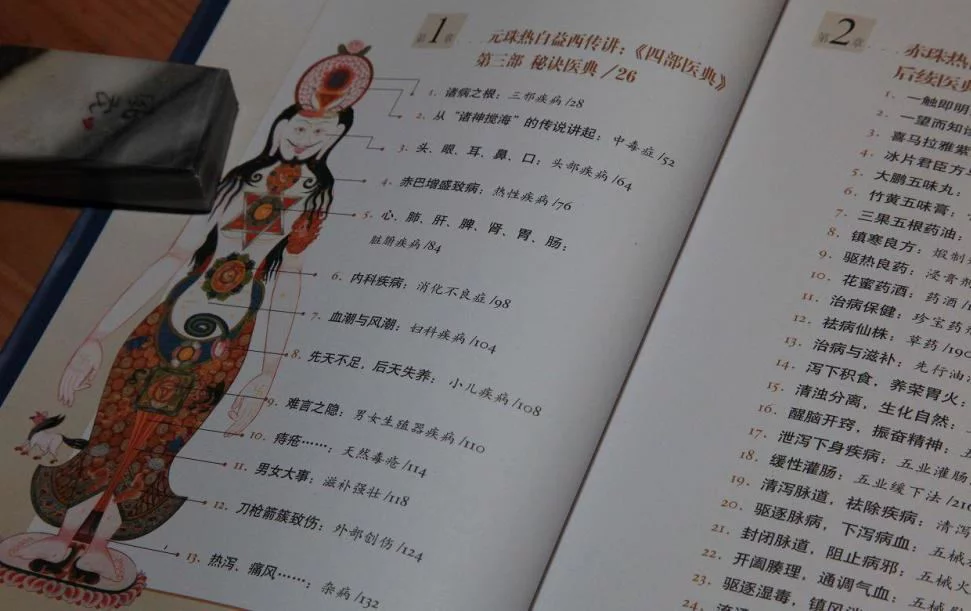 第1章
元珠热白益西传讲:《四部医典》
第三部 秘诀医典 /26
1、诸病之根: 三邪疾病/28
2、从“诸神搅海”的传说讲起: 中毒症/52
3、头、眼、耳、鼻、口: 头部疾病/64
4、赤巴增盛致病: 热性疾病/76
5、心、肺、肝、脾、肾、胃、肠:
脏腑疾病/84
6、内科疾病: 消化不良症/98
7、血潮与风潮: 妇科疾病/104
8、先天不足,后天失养: 小儿疾病/108
9、难言之隐: 男女生殖器疾病/110
10、痔疮……: 天然毒疮/114
11、男女大事: 滋补强壮/118
12、刀枪箭簇致伤: 外部创伤/124
13、热泻、痛风……: 杂病/132
第2章
赤珠热
后续医典
1、一触即明
2、一望而知
3、喜马拉雅紫
4、冰片君臣方
5、大鹏五味丸:
6、竹黄五味膏:
7、三果五根药油:
8、镇寒良方: 煅制
9、驱热良药: 浸膏
10、花蜜药酒: 药酒/1
11、治病保健: 珍宝药
12、祛病仙株: 草药/190
13、治病与滋补: 先行油
14、泻下积食,养荣胃火:
15、清浊分离,生化自然:
16、醒脑开窍,振奋精神:
17、泄泻下身疾病: 五业灌肠
18、缓性灌肠: 五业缓下法/210
19、清泻脉道,祛除疾病: 清泻
20、驱逐脉病,下泻病血: 五械
21、封闭脉道,阻止病邪: 五械火
22、开阖腠理,通调气血: 五械
23、驱逐湿毒,镇风
24、